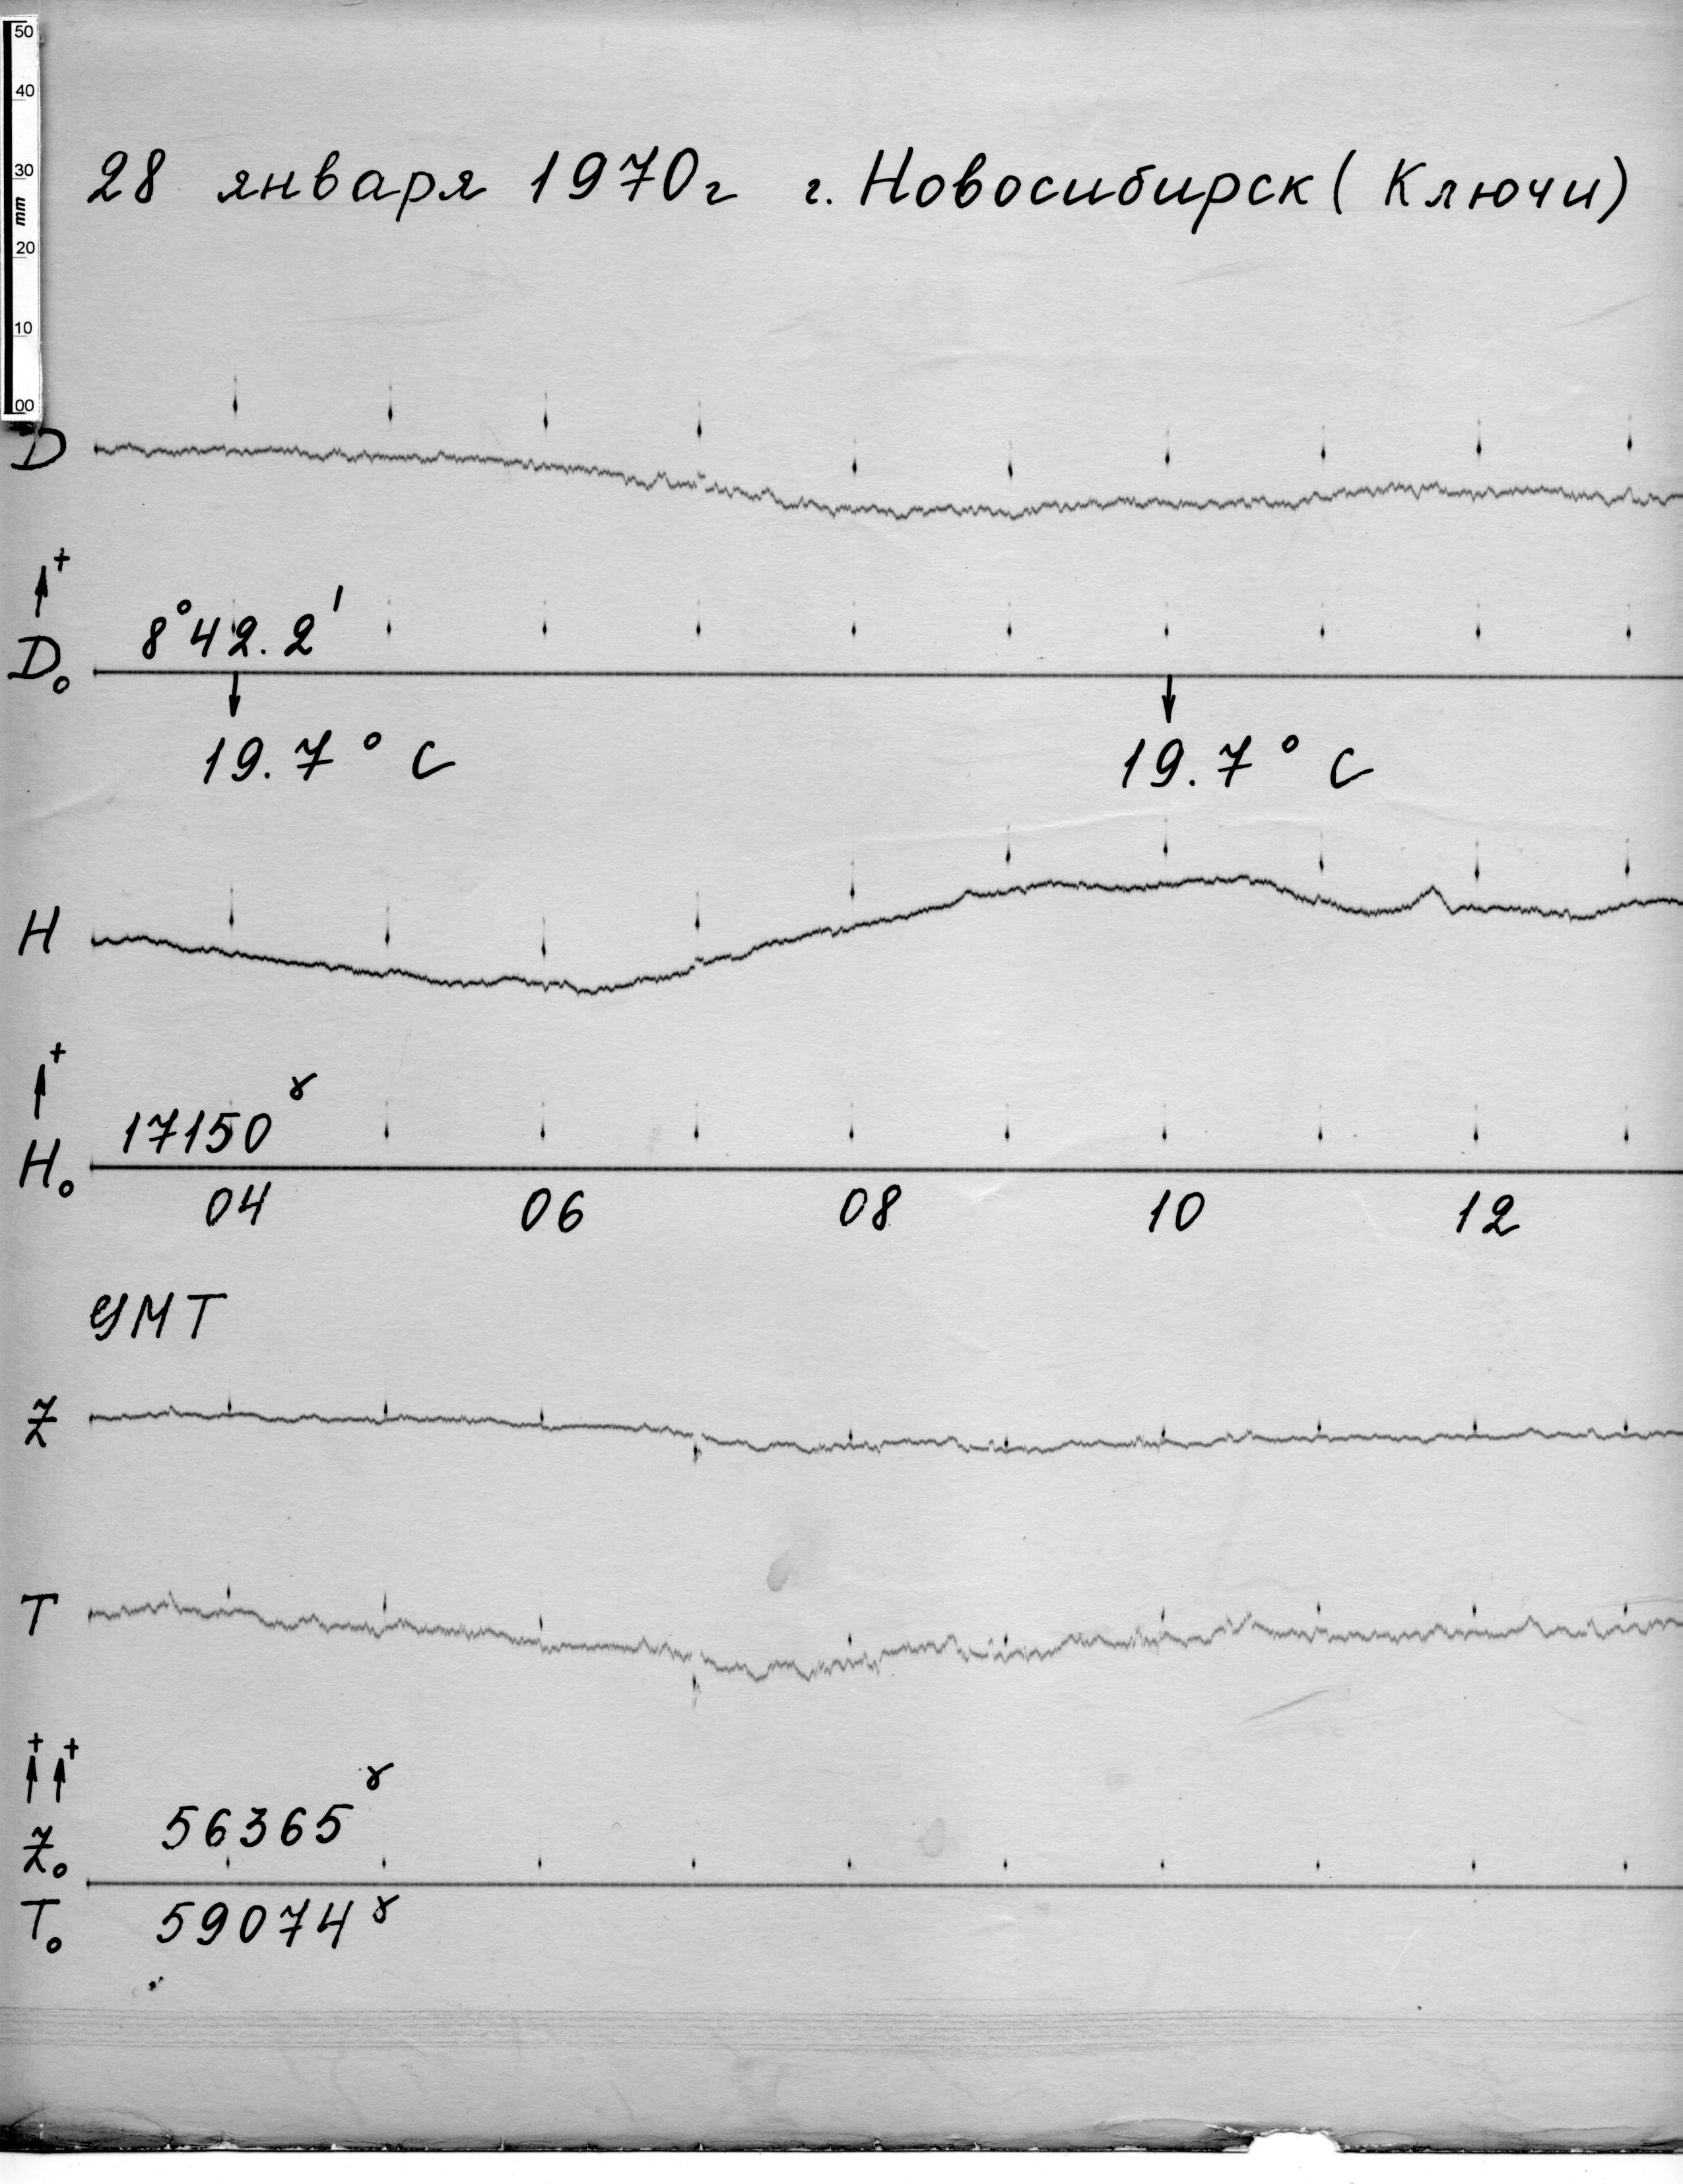 50
40
30
mm
20
10
00
28 января 1970г г. Новосибирск (Ключи)
D
+
8°42.2'
D₀
19.7°C 19.7°C
H
+
17150γ
H₀
04 06 08 10 12
УМТ
Z
T
+ +
56365γ
Z₀
T₀ 59074γ